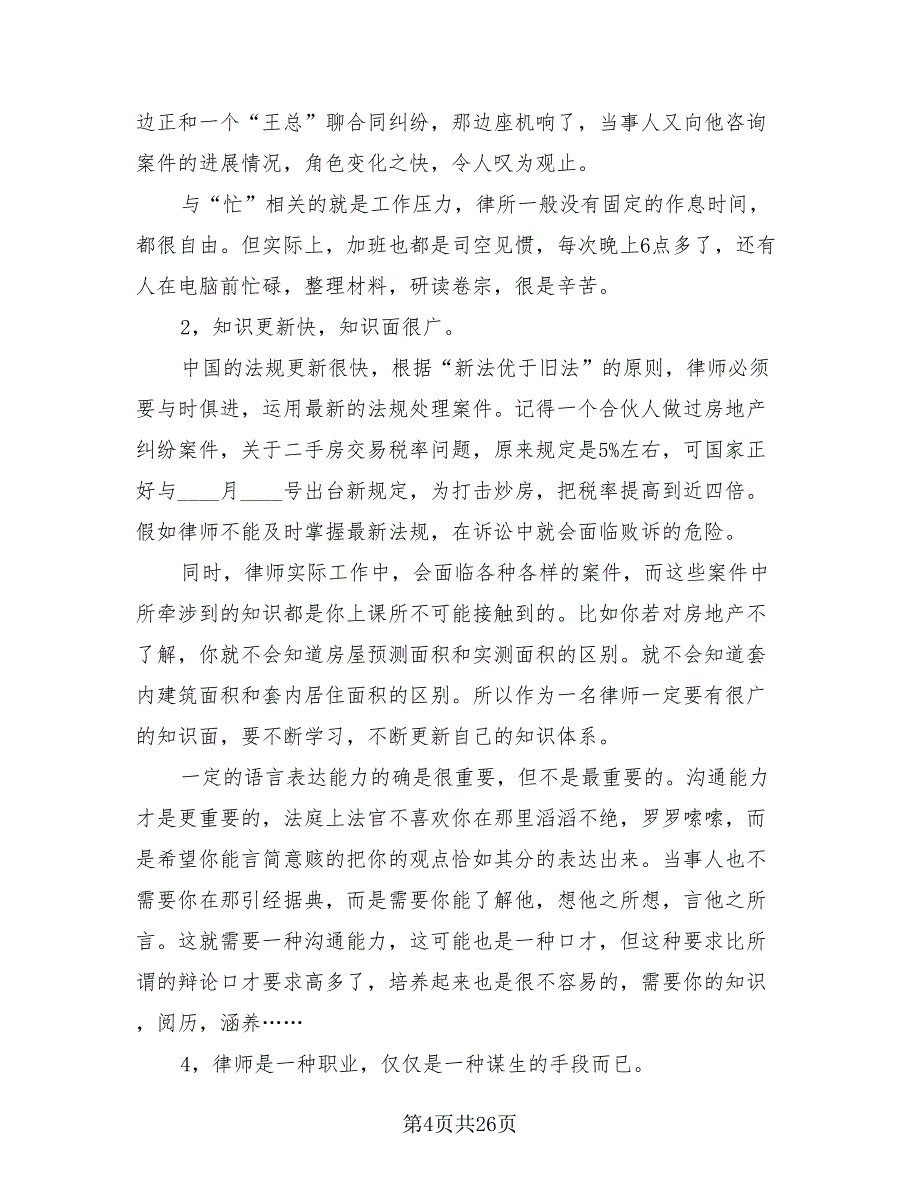 边正和一个“王总”聊合同纠纷，那边座机响了，当事人又向他咨询
案件的进展情况，角色变化之快，令人叹为观止。
与“忙”相关的就是工作压力，律所一般没有固定的作息时间，
都很自由。但实际上，加班也都是司空见惯，每次晚上6点多了，还有
人在电脑前忙碌，整理材料，研读卷宗，很是辛苦。
2，知识更新快，知识面很广。
中国的法规更新很快，根据“新法优于旧法”的原则，律师必须
要与时俱进，运用最新的法规处理案件。记得一个合伙人做过房地产
纠纷案件，关于二手房交易税率问题，原来规定是5%左右，可国家正
好与____月____号出台新规定，为打击炒房，把税率提高到近四倍。
假如律师不能及时掌握最新法规，在诉讼中就会面临败诉的危险。
同时，律师实际工作中，会面临各种各样的案件，而这些案件中
所牵涉到的知识都是你上课所不可能接触到的。比如你若对房地产不
了解，你就不会知道房屋预测面积和实测面积的区别。就不会知道套
内建筑面积和套内居住面积的区别。所以作为一名律师一定要有很广
的知识面，要不断学习，不断更新自己的知识体系。
一定的语言表达能力的确是很重要，但不是最重要的。沟通能力
才是更重要的，法庭上法官不喜欢你在那里滔滔不绝，罗罗嗦嗦，而
是希望你能言简意赅的把你的观点恰如其分的表达出来。当事人也不
需要你在那引经据典，而是需要你能了解他，想他之所想，言他之所
言。这就需要一种沟通能力，这可能也是一种口才，但这种要求比所
谓的辩论口才要求高多了，培养起来也是很不容易的，需要你的知识
，阅历，涵养……
4，律师是一种职业，仅仅是一种谋生的手段而已。
第4页共26页